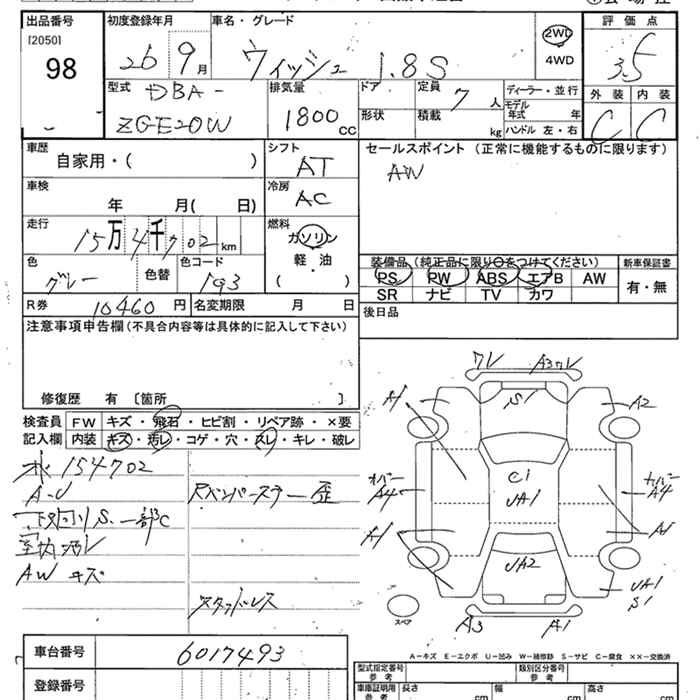 出品番号
[2050]
98
初度登録年月
26 9月
車名・グレード
ウィッシュ 1.8S
2WD
4WD
評価点
3.5
外装 内装
C C
型式
DBA-
ZGE20W
排気量
1800 CC
ドア
形状
定員 7人
積載 kg
ディーラー・並行
モデル年式 年
ハンドル 左・右
車歴
自家用・( )
車検
年 月( 日)
走行
15万4千702 km
色
グレー
色替
色コード
193
シフト
AT
冷房
AC
燃料
ガソリン
軽・油
( )
セールスポイント (正常に機能するものに限ります)
AW
装備品 (純正品に限り○をつけてください)
PS PW ABS エアB AW
SR ナビ TV カワ
新車保証書
有・無
R券 10460 円
名変期限 月 日
後日品
注意事項申告欄 (不具合内容等は具体的に記入して下さい)
修復歴 有 [箇所 ]
検査員
記入欄
FW キズ・飛石・ヒビ割・リペア跡・×要
内装 キズ・汚レ・コゲ・穴・スレ・キレ・破レ
メ 154702
A-U
下回りS.一部C
室内汚レ
AW キズ
Rバンパーステー歪
スタッドレス
ワレ A3ワレ
A1 S1 A2
カバー A4
C1
UA1
カバー A4
A1 A1
UA2
UA1
S1
スペア
A3 A1
A-キズ E-エクボ U-凹み W-補修跡 S-サビ C-腐食 ××-交換済
車台番号 6017493
登録番号
型式指定番号
参考
類別区分番号
参考
車庫証明用
参考
長さ cm 幅 cm 高さ cm